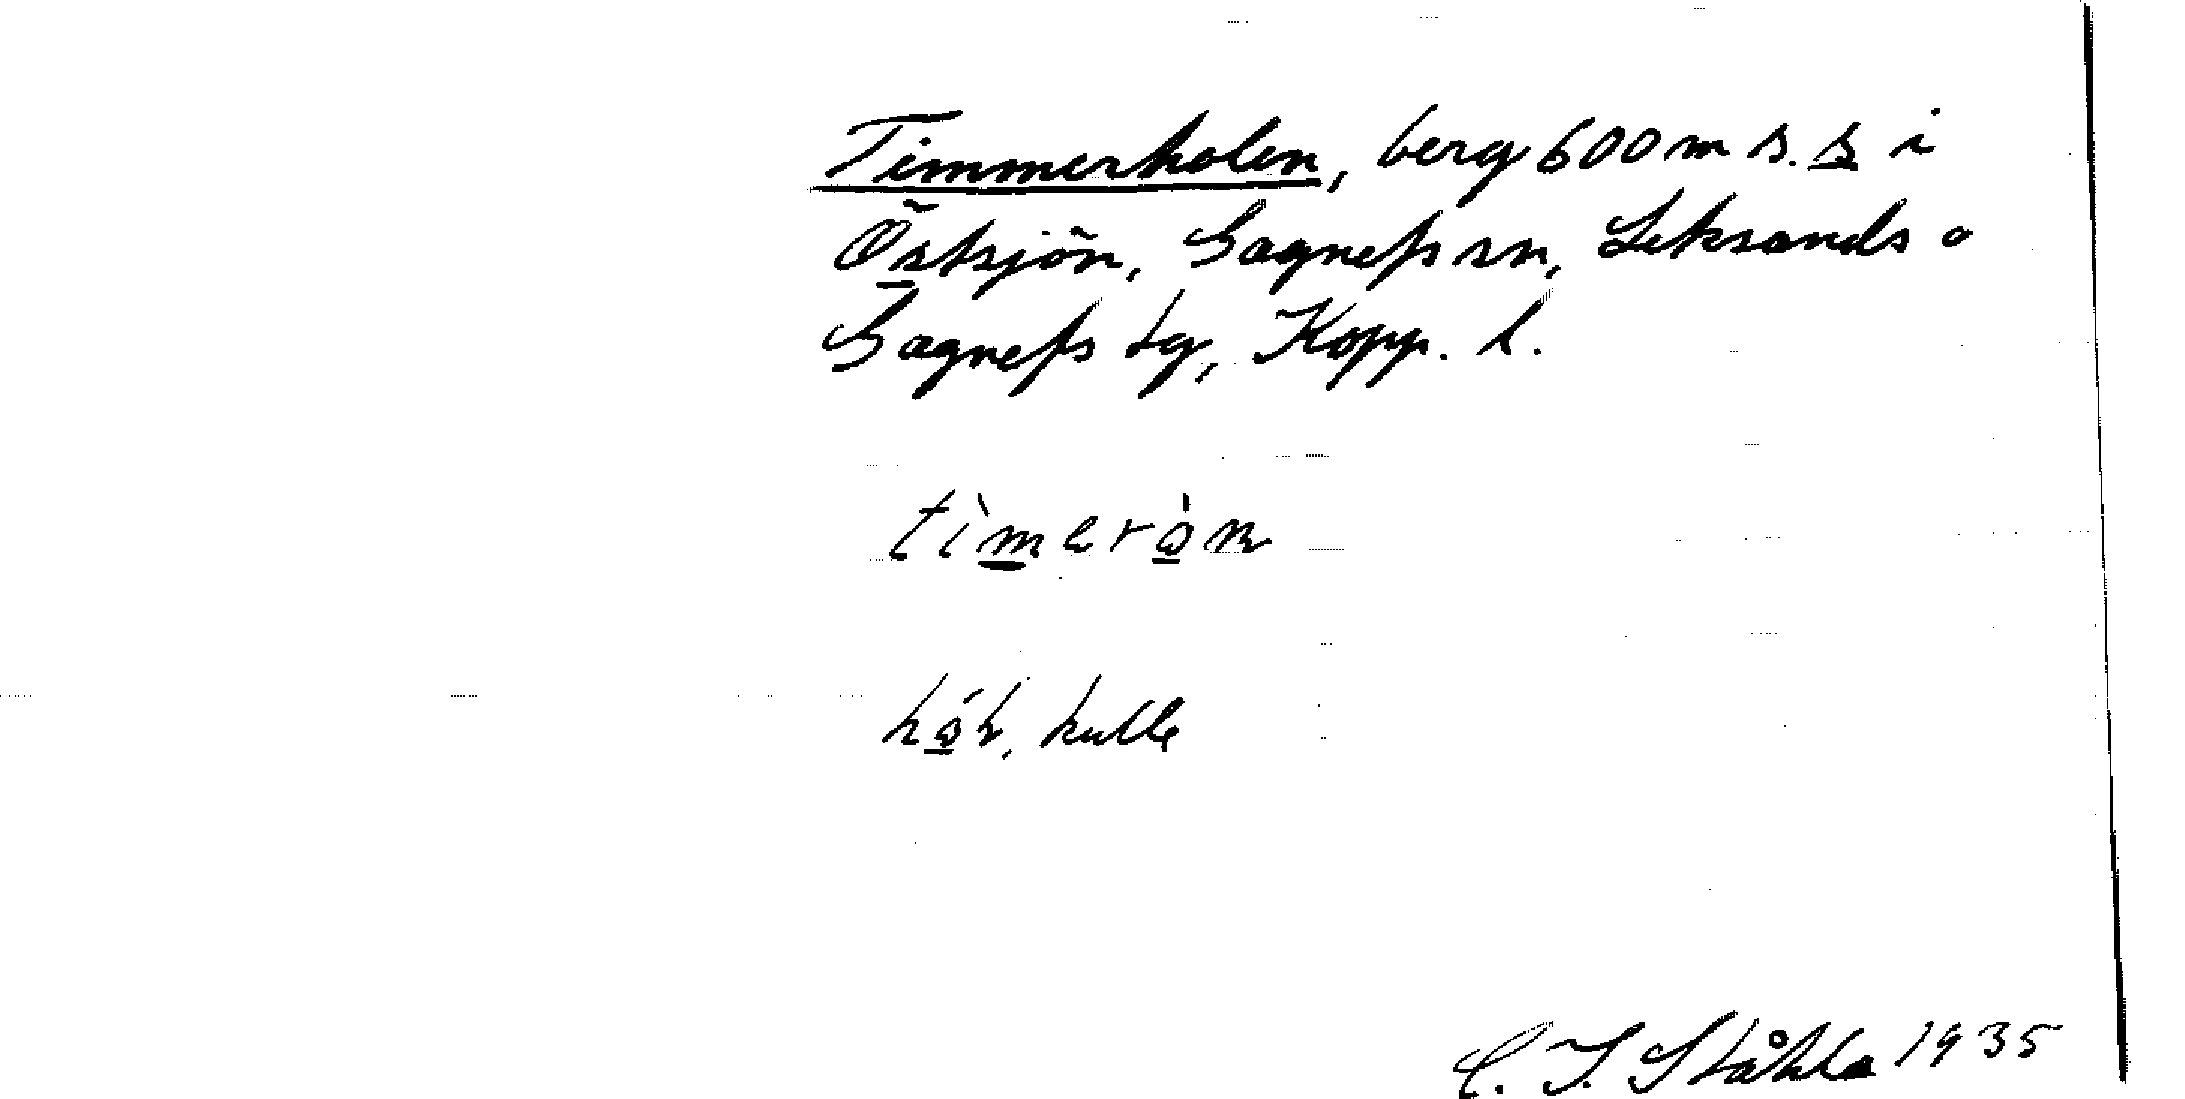 Timmerholen, berg 600 m s. s i
Östsjön, Gagnefs sn, Leksands o
Gagnefs tg, Kopp. l.
tìmeràn
kulle
C. I. Ståhle 1935